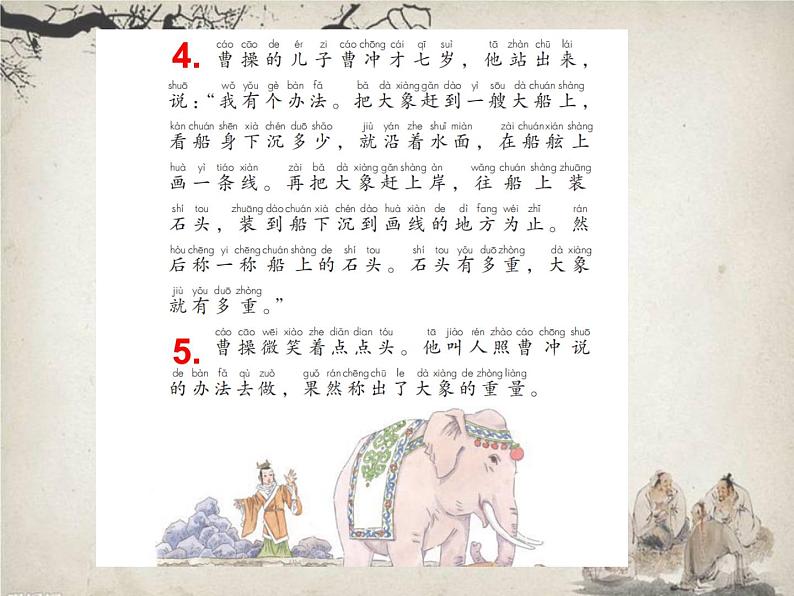 4.
cáo cāo de ér zi cáo chōng cái qī suì tā zhàn chū lái
曹操的儿子曹冲才七岁，他站出来，
shuō wǒ yǒu gè bàn fǎ bǎ dà xiàng gǎn dào yì sōu dà chuán shàng
说：“我有个办法。把大象赶到一艘大船上，
kàn chuán shēn xià chén duō shǎo jiù yán zhe shuǐ miàn zài chuán xián shàng
看船身下沉多少，就沿着水面，在船舷上
huà yì tiáo xiàn zài bǎ dà xiàng gǎn shàng àn wǎng chuán shàng zhuāng
画一条线。再把大象赶上岸，往船上装
shí tou zhuāng dào chuán xià chén dào huà xiàn de dì fang wéi zhǐ rán
石头，装到船下沉到画线的地方为止。然
hòu chēng yi chēng chuán shàng de shí tou shí tou yǒu duō zhòng dà xiàng
后称一称船上的石头。石头有多重，大象
jiù yǒu duō zhòng
就有多重。”
5.
cáo cāo wēi xiào zhe diǎn dian tóu tā jiào rén zhào cáo chōng shuō
曹操微笑着点点头。他叫人照曹冲说
de bàn fǎ qù zuò guǒ rán chēng chū le dà xiàng de zhòng liàng
的办法去做，果然称出了大象的重量。